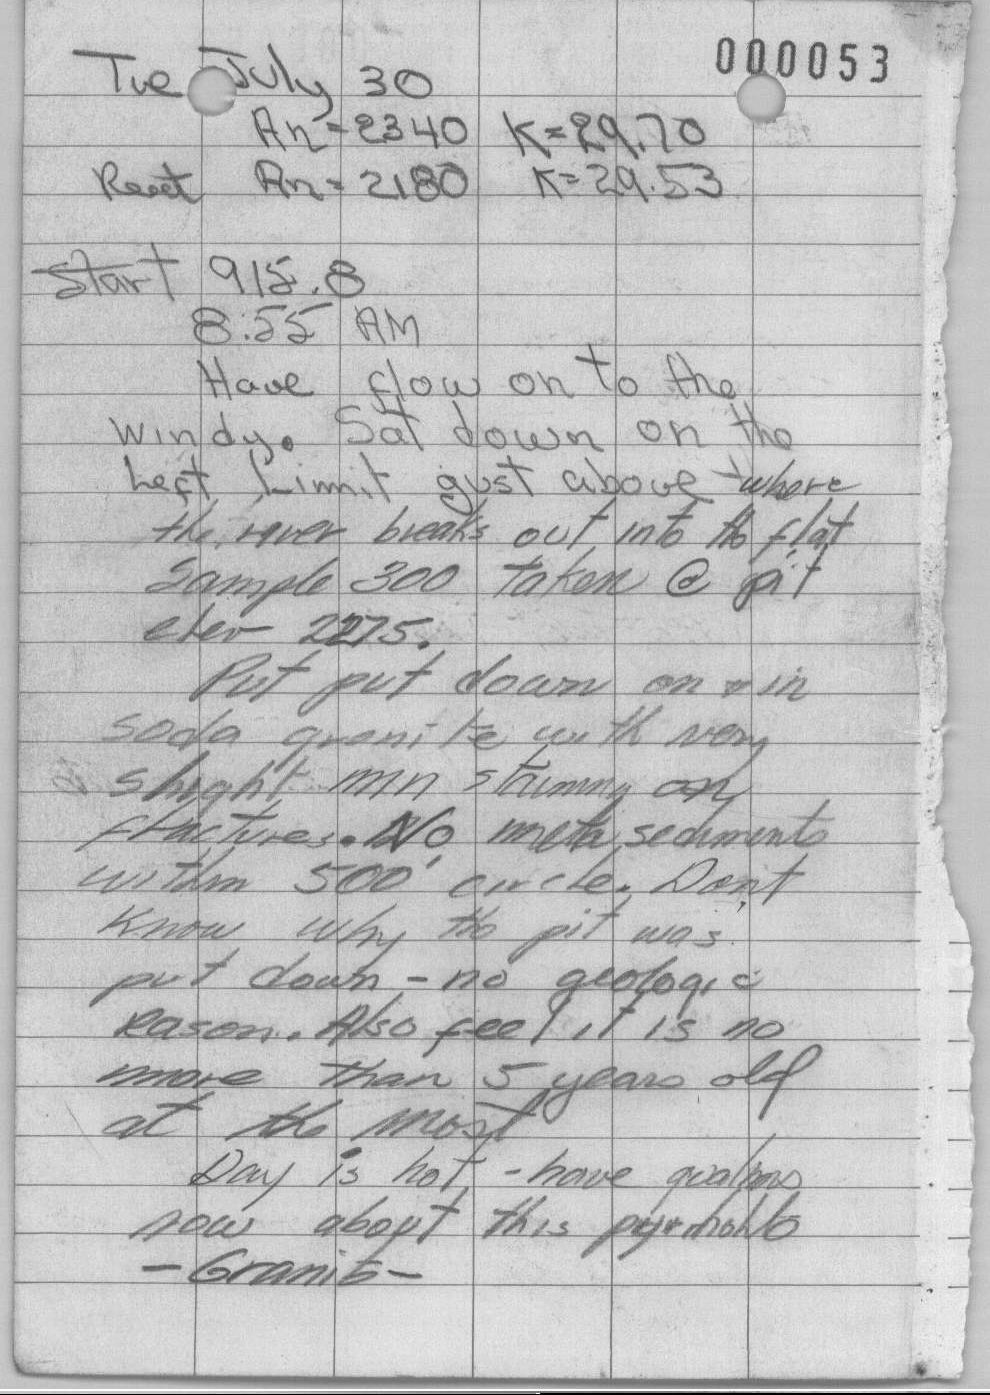 000053
Tue July 30
An = 2340 K = 29.70
Reset An = 2180 K = 29.53
Start 915.8
8:55 AM
Have flow on to the
windy. Sat down on the
Left Limit gust above where
the river breaks out into the flat
Sample 300 taken @ pit
elev 2275.
Put put down on + in
soda granite with very
slight mn staining on
fractures. No meta sediments
within 500' circle. Dont
Know why the pit was
put down - no geologic
reason. Also feel it is no
more than 5 years old
at the most
Day is hot - have qualms
now about this
- Granite -